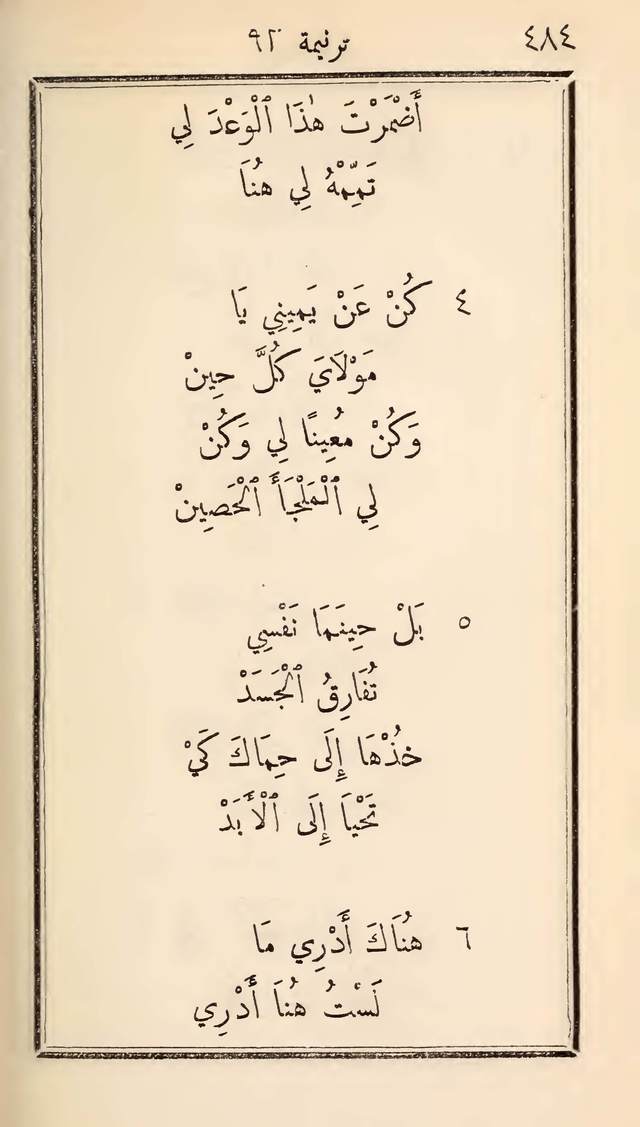 ٤٨٤ ترنيمة ٩٢
أَضْمَرْتَ هٰذَا ٱلْوَعْدَ لِي
تَمِّمْهُ لِي هُنَا
٤ كُنْ عَنْ يَمِينِي يَا
مَوْلَايَ كُلَّ حِينْ
وَكُنْ مُعِينًا لِي وَكُنْ
لِي ٱلْمَلْجَأَ ٱلْحَصِينْ
٥ بَلْ حِينَمَا نَفْسِي
تُفَارِقُ ٱلْجَسَدْ
خُذْهَا إِلَى حِمَاكَ كَيْ
تَحْيَا إِلَى ٱلْأَبَدْ
٦ هُنَاكَ أَدْرِي مَا
لَسْتُ هُنَا أَدْرِي